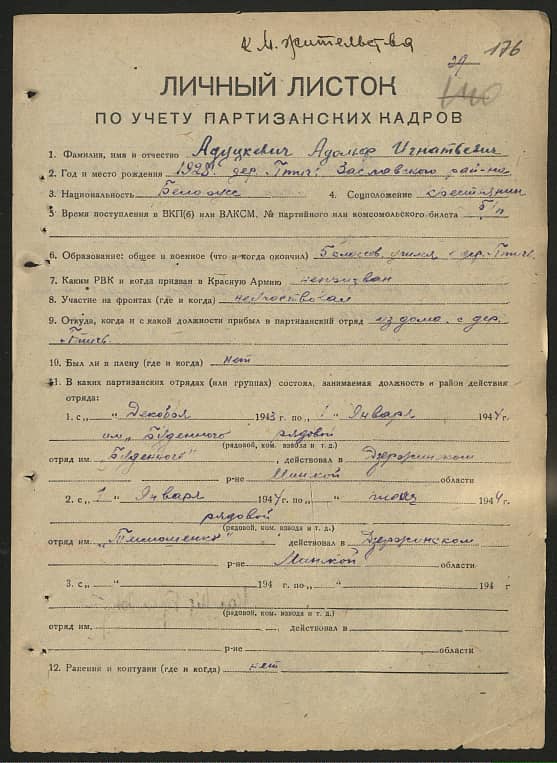 к м. жительства
29 176
ЛИЧНЫЙ ЛИСТОК
ПО УЧЕТУ ПАРТИЗАНСКИХ КАДРОВ
1. Фамилия, имя и отчество Адуцкевич Адольф Игнатьевич
2. Год и место рождения дер. Птич, Заславского рай-на
3. Национальность Белорус 4. Соцположение крестянин
5 Время поступления в ВКП(б) или ВЛКСМ. № партийного или комсомольского билета б/п
6. Образование: общее и военное (что и когда окончил) 5 классов, учился в дер. Птич.
7. Каким РВК и когда призван в Красную Армию непризван
8. Участие на фронтах (где и когда) неучаствовал
9. Откуда, когда и с какой должности прибыл в партизанский отряд из дома, с дер.
Птичь.
10. Был ли в плену (где и когда) нет
11. В каких партизанских отрядах (или группах) состоял, занимаемая должность и район действия
отряда:
1. с „ “ Декабря 1943 г. по „ 1 “ Января 1944 г.
им „Буденного рядовой
(рядовой, ком. взвода и т. д.)
отряд им. „Буденного“ , действовал в Дзержинском
р-не Минкой области
2. с „ 1 “ Января 1944 г. по „ “ июль 1944 г.
рядовой
(рядовой, ком. взвода и т. д.)
отряд им. „Тимошенко“ действовал в Дзержинском
р-не Минкой области
3. с „ “ 194 г. по „ “ 194 г
(рядовой, ком. взвода и т. д.)
отряд им. , действовал в
р-не области
12. Ранения и контузии (где и когда) нет